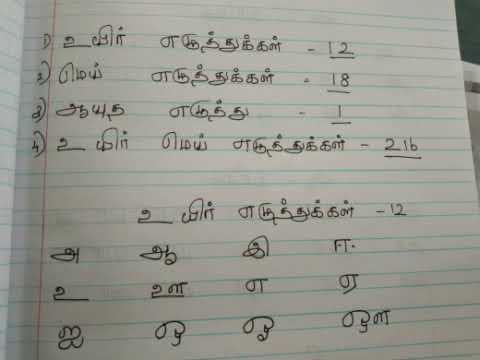 1) உயிர் எழுத்துக்கள் - 12
2) மெய் எழுத்துக்கள் - 18
3) ஆயுத எழுத்து - 1
4) உயிர் மெய் எழுத்துக்கள் - 216
உயிர் எழுத்துக்கள் - 12
அ ஆ இ ஈ
உ ஊ எ ஏ
ஐ ஒ ஓ ஔ